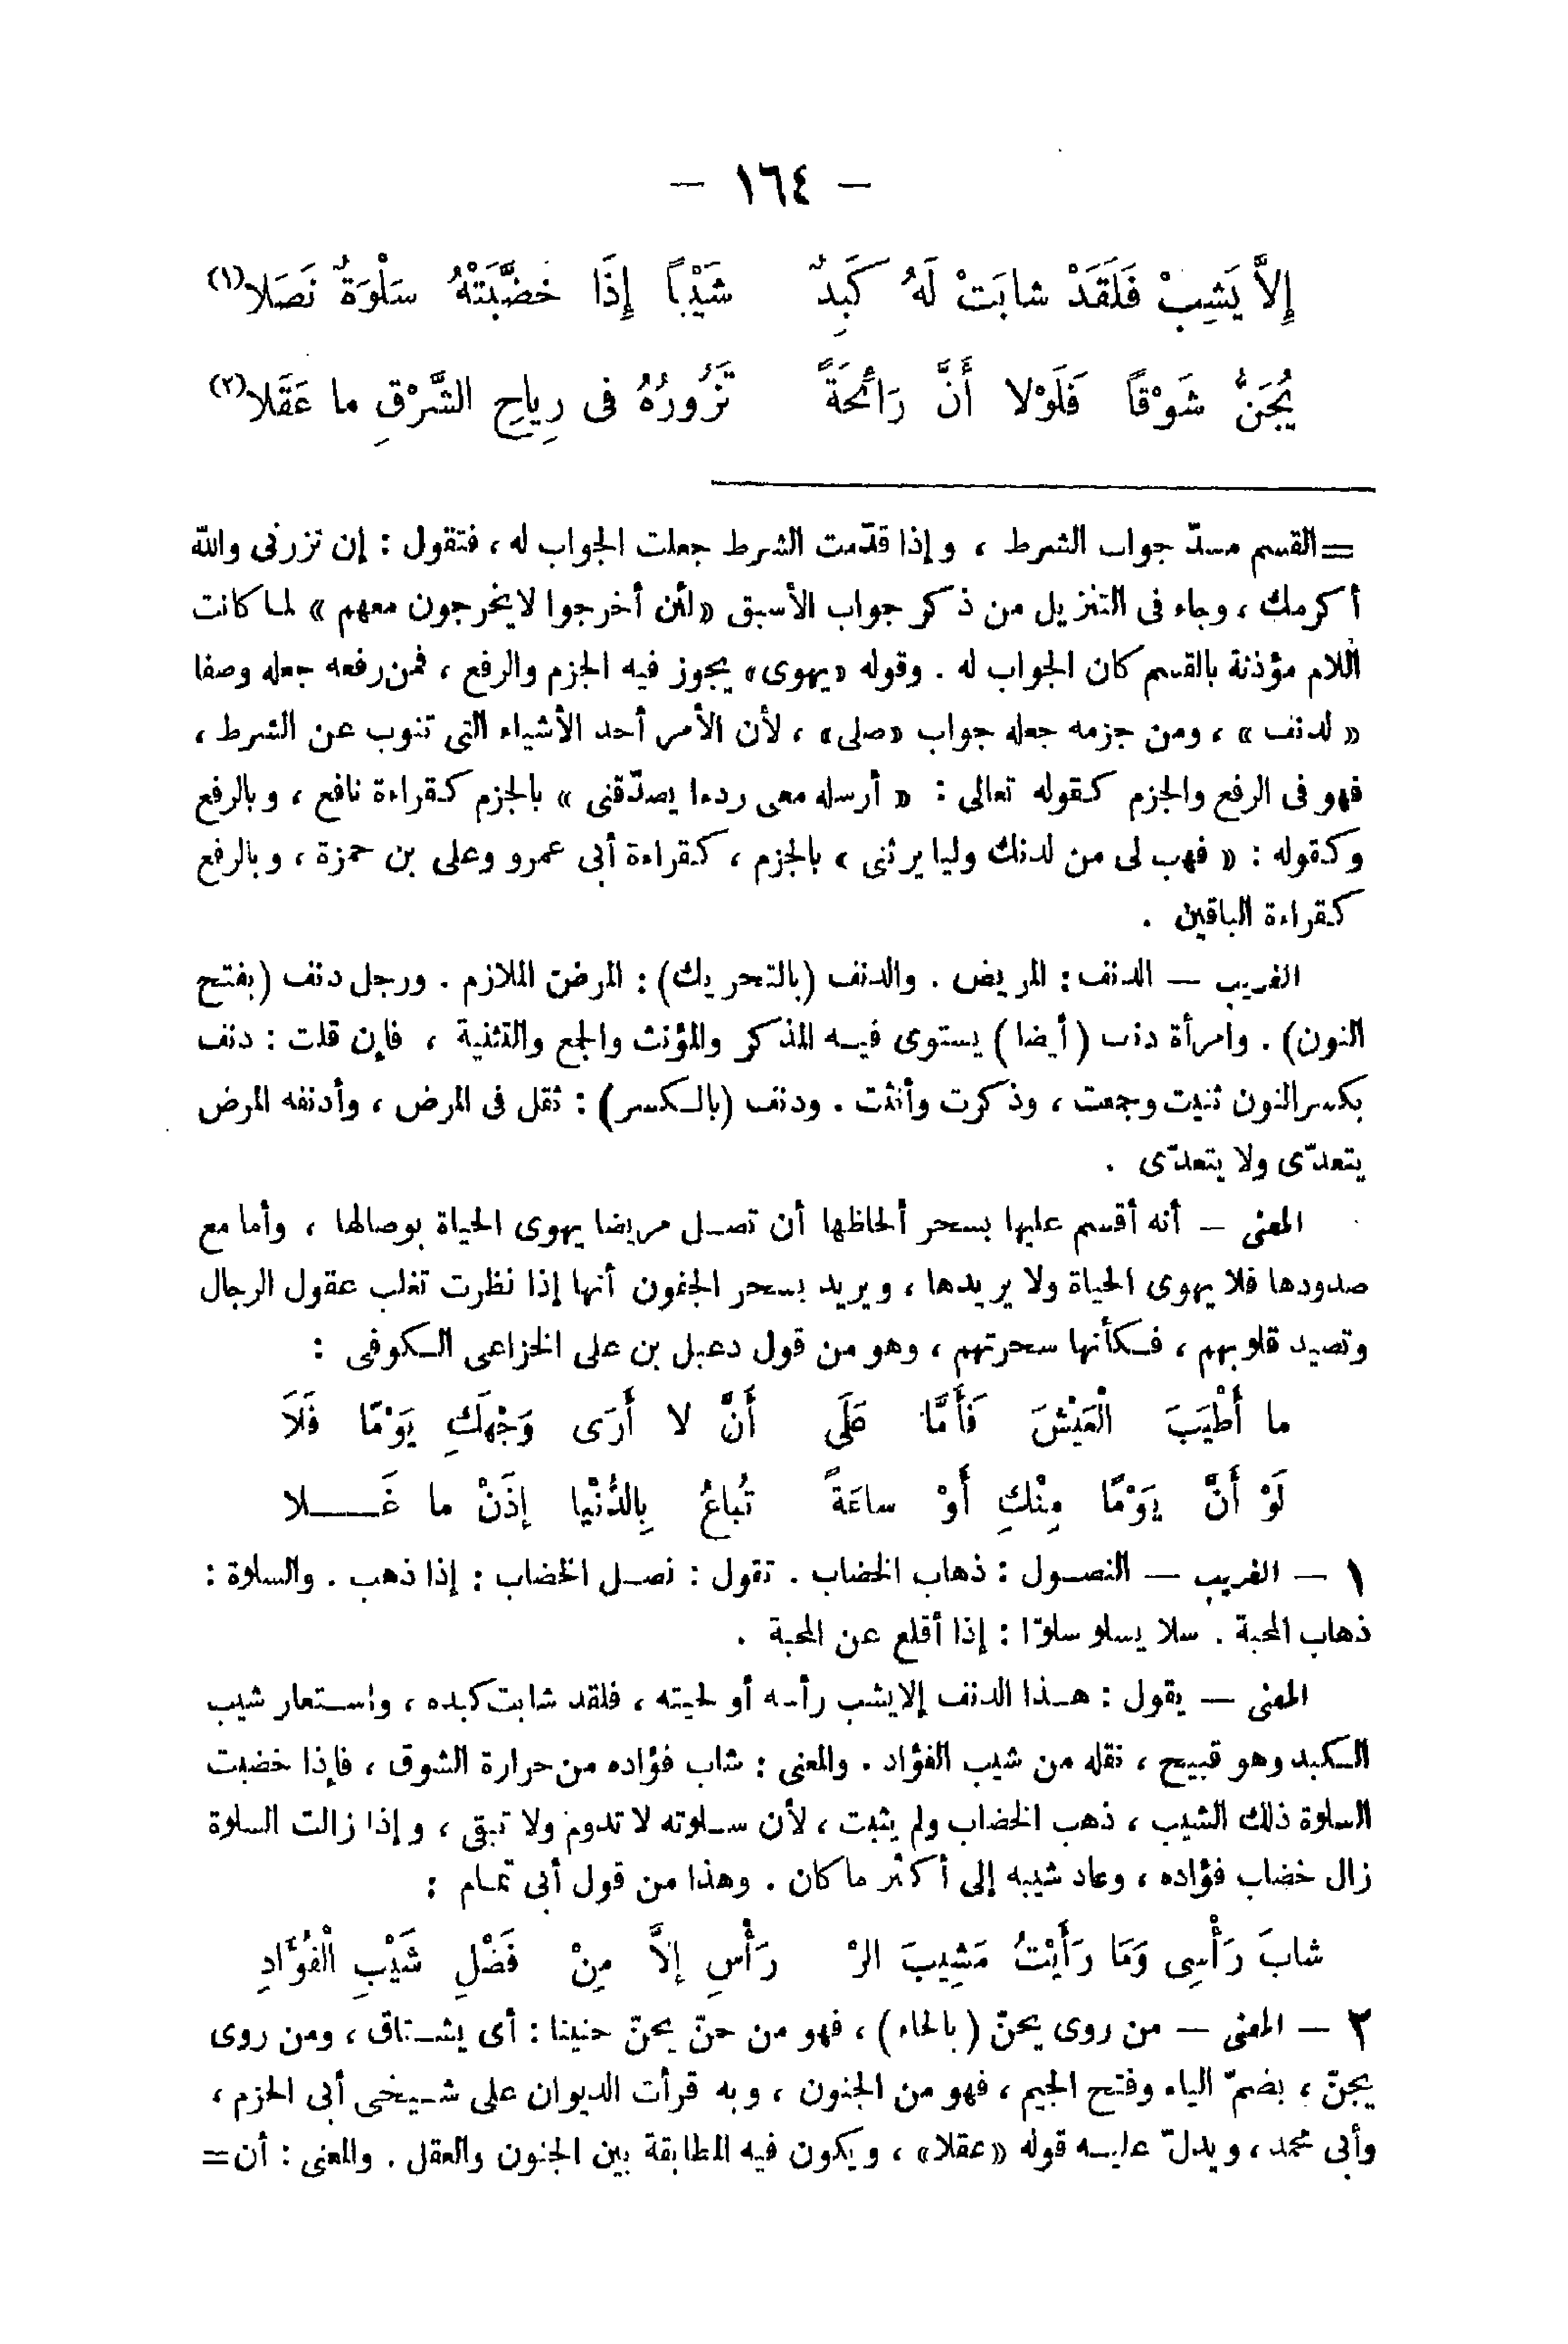 – ١٦٤ –
إِلاَّ يَشِبْ فَلَقَدْ شابَتْ لَهُ كَبِدٌ شَيْبًا إِذَا خَضَّبَتْهُ سَلْوَةٌ نَصَلا(١)
يُجَنُّ شَوْقاً فَلَوْلا أَنَّ رَائِحَةً تَزُورُهُ فى رِياحِ الشَّرْقِ ما عَقَلا(٢)
=القسم مسدّ جواب الشرط ، وإذا قدّمت الشرط جعلت الجواب له ، فتقول : إن تزرنى والله
أكرمك ، وجاء فى التنزيل من ذكر جواب الأسبق «لئن أخرجوا لايخرجون معهم» لما كانت
اللام مؤذنة بالقسم كان الجواب له . وقوله «يهوى» يجوز فيه الجزم والرفع ، فمن رفعه جعله وصفا
« لدنف » ، ومن جزمه جعله جواب «صلى» ، لأن الأمر أحد الأشياء التى تنوب عن الشرط ،
فهو فى الرفع والجزم كقوله تعالى : « أرسله معى ردءا يصدّقنى » بالجزم كقراءة نافع ، وبالرفع
وكقوله : « فهب لى من لدنك وليا يرثنى » بالجزم ، كقراءة أبى عمرو وعلى بن حمزة ، وبالرفع
كقراءة الباقين .
الغريب – الدنف : المريض . والدنف (بالتحريك) : المرض الملازم . ورجل دنف (بفتح
النون) . وامرأة دنف (أيضا) يستوى فيه المذكر والمؤنث والجمع والتثنية ، فإن قلت : دنف
بكسر النون ثنيت وجمعت ، وذكرت وأنثت . ودنف (بالكسر) : ثقل فى المرض ، وأدنفه المرض
يتعدّى ولا يتعدّى .
المعنى – أنه أقسم عليها بسحر ألحاظها أن تصل مريضا يهوى الحياة بوصالها ، وأما مع
صدودها فلا يهوى الحياة ولا يريدها ، ويريد بسحر الجفون أنها إذا نظرت تغلب عقول الرجال
وتصيد قلوبهم ، فكأنها سحرتهم ، وهو من قول دعبل بن على الخزاعى الكوفى :
ما أَطْيَبَ الْعَيْشَ فَأَمَّا عَلَى أَنْ لا أَرَى وَجْهَكِ يَوْمًا فَلَا
لَوْ أَنَّ يَوْمًا مِنْكِ أَوْ ساعَةً تُباعُ بِالدُّنْيا إِذَنْ ما غَلا
١ – الغريب – النصول : ذهاب الخضاب . تقول : نصل الخضاب : إذا ذهب . والسلوة :
ذهاب المحبة . سلا يسلو سلوّا : إذا أقلع عن المحبة .
المعنى – يقول : هذا الدنف إلا يشب رأسه أو لحيته ، فلقد شابت كبده ، واستعار شيب
الكبد وهو قبيح ، نقله من شيب الفؤاد . والمعنى : شاب فؤاده من حرارة الشوق ، فإذا خضبت
السلوة ذلك الشيب ، ذهب الخضاب ولم يثبت ، لأن سلوته لا تدوم ولا تبقى ، وإذا زالت السلوة
زال خضاب فؤاده ، وعاد شيبه إلى أكثر ما كان . وهذا من قول أبى تمام :
شابَ رَأْسِى وَمَا رَأَيْتُ مَشِيبَ الرْ رَأْسِ إِلاَّ مِنْ فَضْلِ شَيْبِ الْفُؤَادِ
٢ – المعنى – من روى يحنّ (بالحاء) ، فهو من حنّ يحنّ حنينا : أى يشتاق ، ومن روى
يجنّ ، بضمّ الياء وفتح الجيم ، فهو من الجنون ، وبه قرأت الديوان على شيخى أبى الحزم ،
وأبى محمد ، ويدلّ عليه قوله «عقلا» ، ويكون فيه المطابقة بين الجنون والعقل . والمعنى : أن=